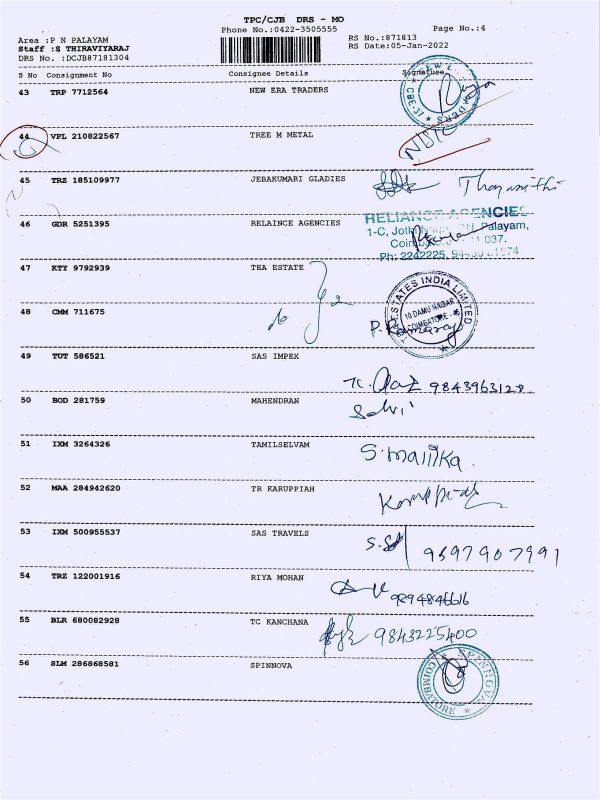 TPC/CJB DRS - MO
Phone No.:0422-3505555
Page No.:4
Area :P N PALAYAM
RS No.:871813
Staff :S THIRAVIYARAJ
RS Date:05-Jan-2022
DRS No. :DCJB87181304
S No Consignment No Consignee Details Signature
43 TRP 7712564 NEW ERA TRADERS
CBE-37
44 VPL 210822567 TREE M METAL
45 TRZ 185109977 JEBAKUMARI GLADIES
46 GDR 5251395 RELAINCE AGENCIES
RELIANCE AGENCIES
Palayam,
037.
Ph: 2242225,
47 KTY 9792939 TEA ESTATE
ESTATES INDIA LIMITED
10 DAMU NAGAR
COIMBATORE - 45
48 CMM 711675
49 TUT 586521 SAS IMPEX
50 BOD 281759 MAHENDRAN
Selvi
51 IXM 3264326 TAMILSELVAM
S. mallika
52 MAA 284942620 TR KARUPPIAH
53 IXM 500955537 SAS TRAVELS
9697907991
54 TRZ 122001916 RIYA MOHAN
9894846616
55 BLR 680082928 TC KANCHANA
9843225400
56 SLM 286868581 SPINNOVA
SPINNOVA
COIMBATORE